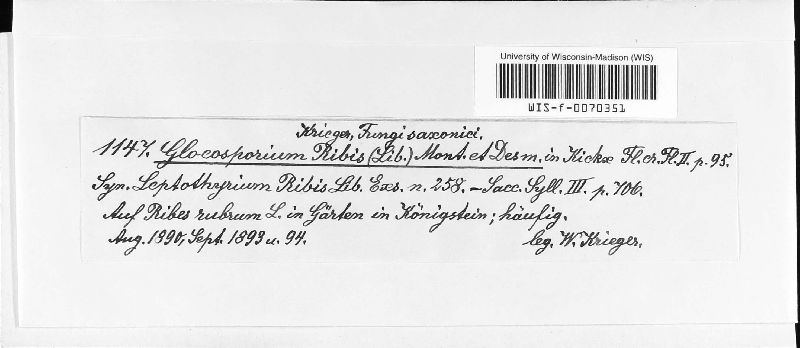 University of Wisconsin-Madison (WIS)
WIS-f-0070351
Krieger, Fungi saxonici.
1147. Gloeosporium Ribis (Lib.) Mont. et Desm. in Kickx Fl. cr. Fl. II. p. 95.
Syn. Leptothyrium Ribis Lib. Exs. n. 258. – Sacc. Syll. III. p. 706.
Auf Ribes rubrum L. in Gärten in Königstein; häufig.
Aug. 1890, Sept. 1893 u. 94. leg. W. Krieger.